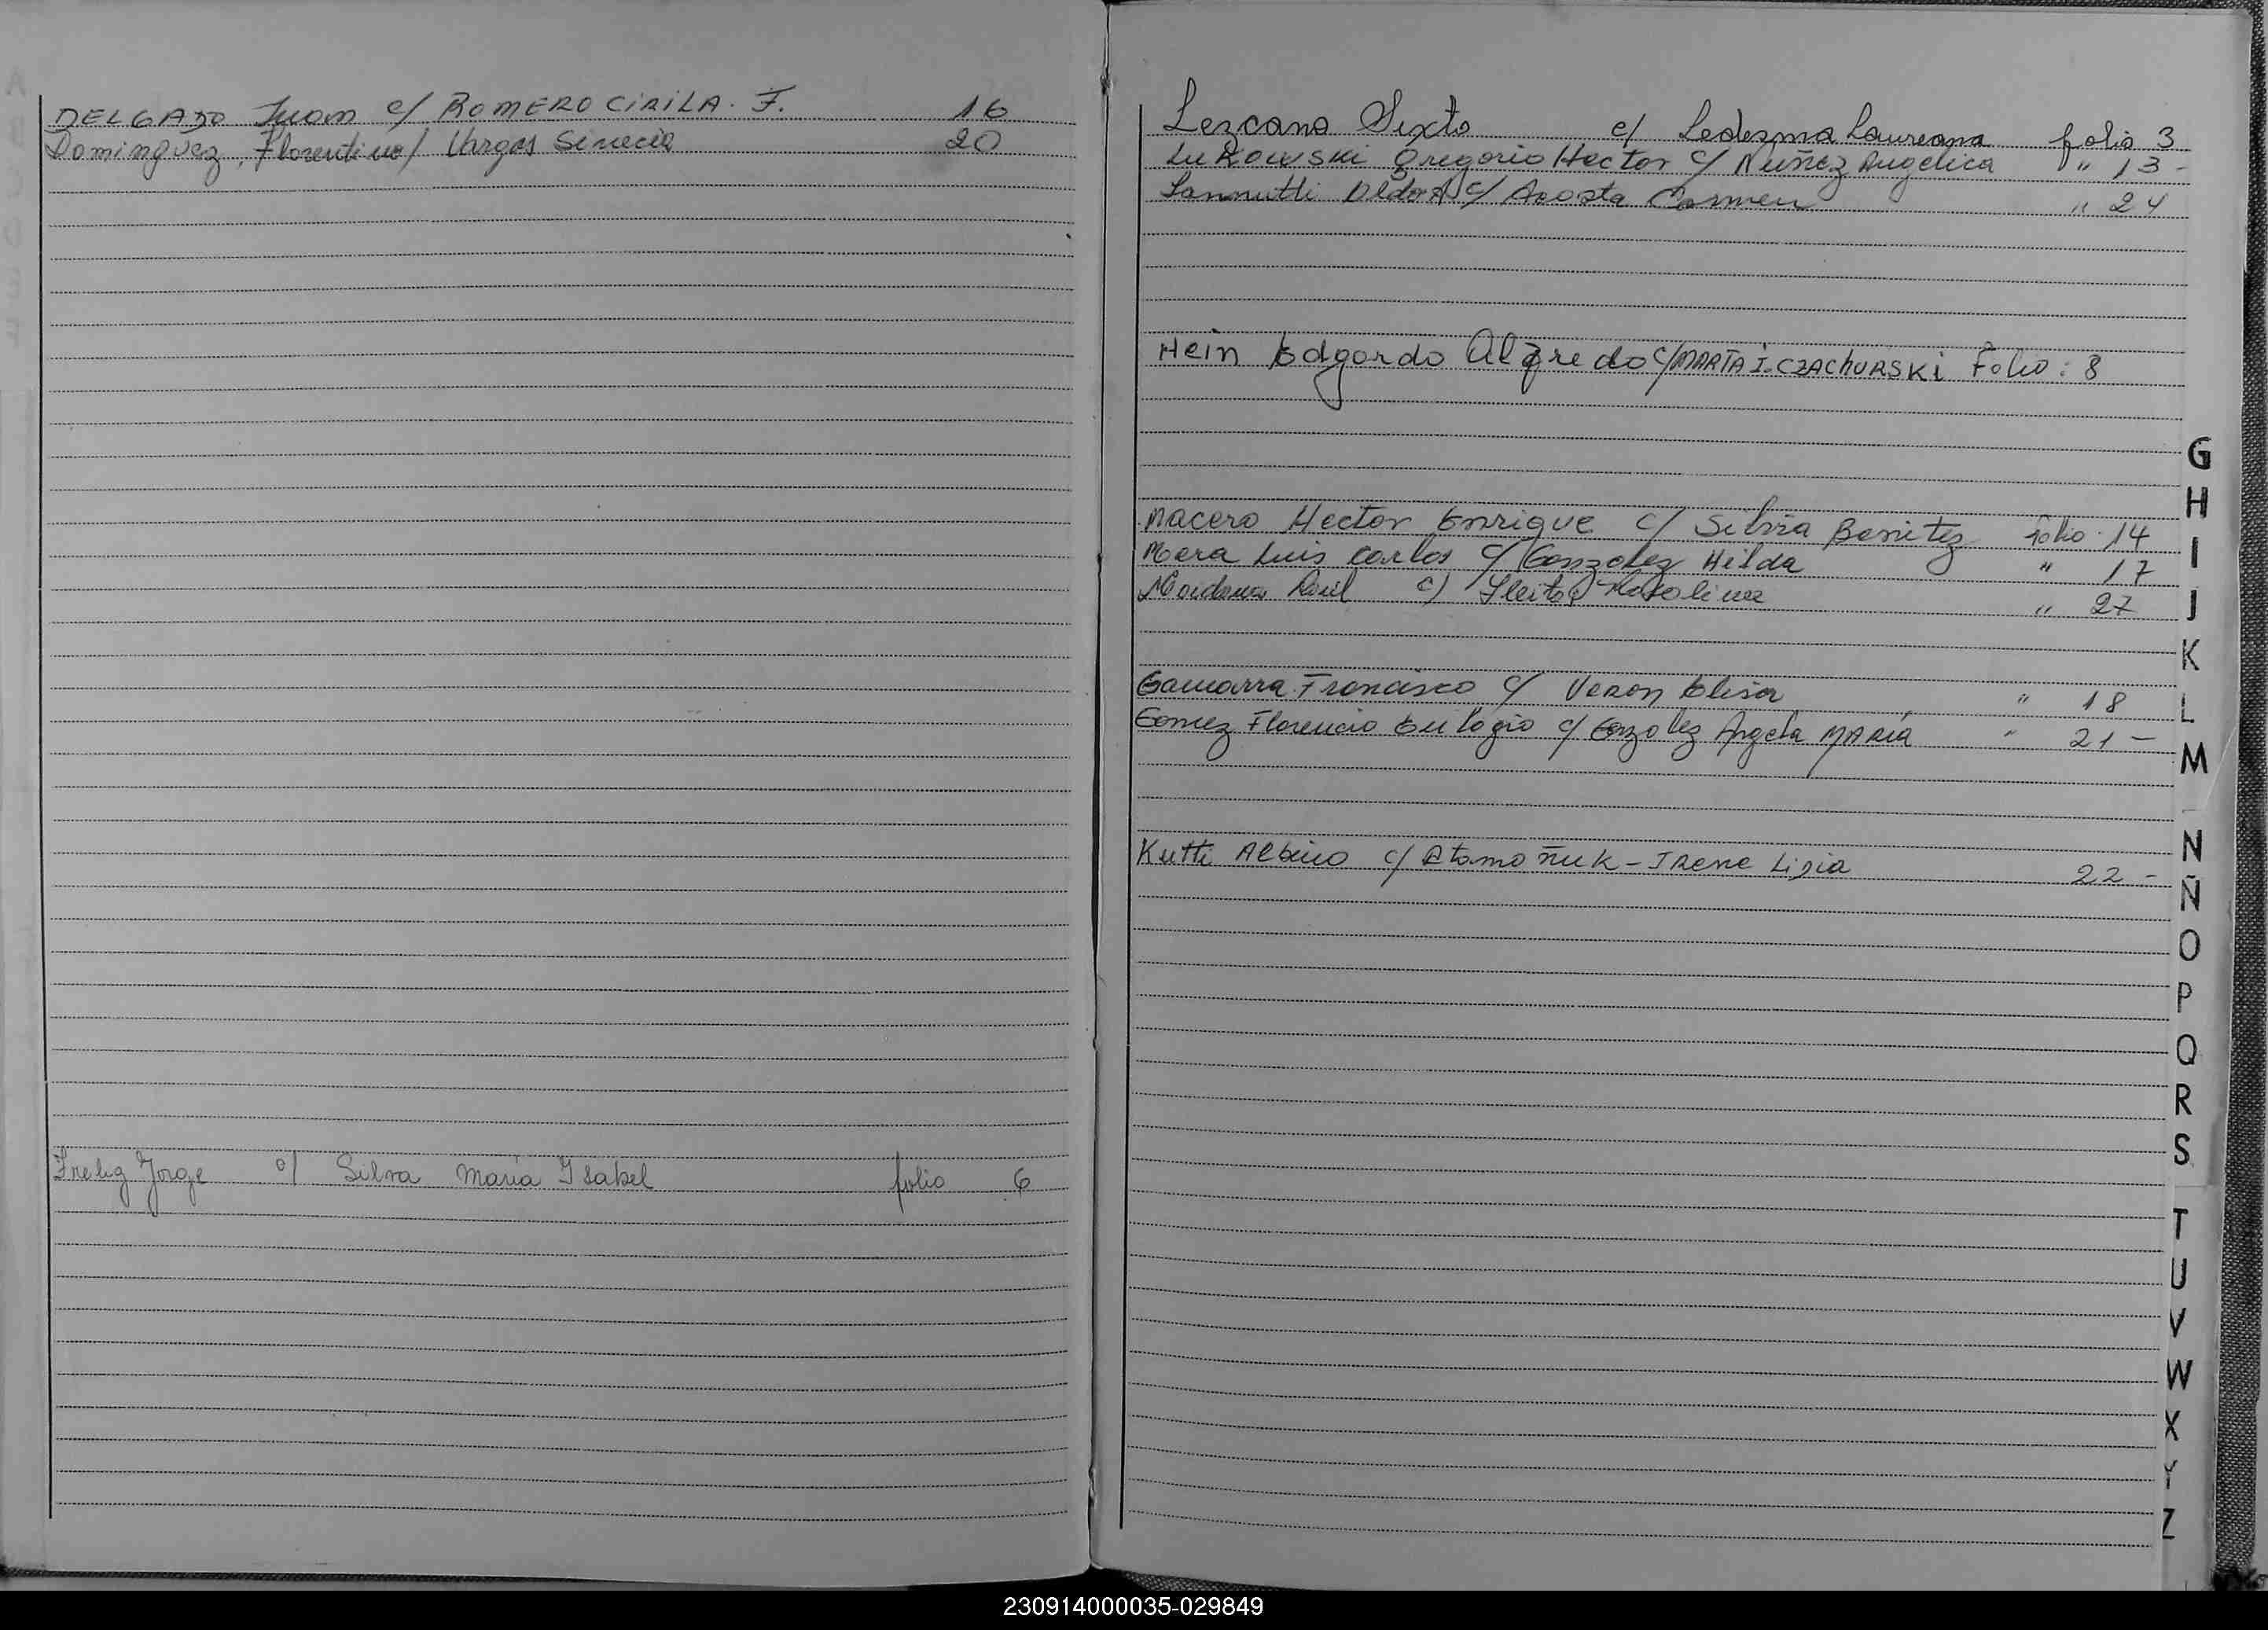 DELGADO Juan c/ ROMERO CIRILA. F. 16
Dominguez, Florentino c/ Vargas Sinecia 20
Frelig Jorge c/ Silva Maria Isabel folio 6
Lezcano Sixto c/ Ledezma Laureana folio 3
Lukowski Gregorio Hector c/ Nuñez Angelica " 13 -
Iannutti Aldo A c/ Acosta Carmen " 24
Hein Edgardo Alfredo c/ MARTA I. CZAChURSKi Folio : 8
Macero Hector Enrique c/ Silvia Benitez folio 14
Mera Luis Carlos c/ Gonzalez Hilda " 17
Maidana Raul c/ " 27
Gamarra Francisco c/ Veron Elisa " 18
Gomez Florencio Eulogio c/ Gonzalez Angela MARIA " 21 -
Kutti Albino c/ Atamañuk - Irene Lidia 22 -
G
H
I
J
K
L
M
N
Ñ
O
P
Q
R
S
T
U
V
W
X
Y
Z
230914000035-029849